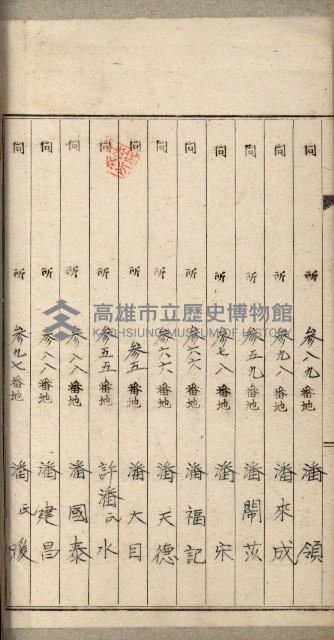 同 所 參八九番地 潘領
同 所 參九八番地 潘來成
同 所 參五九番地 潘鬧茨
同 所 參七八番地 潘宋
同 所 參六六番地 潘福記
同 所 參六六番地 潘天德
同 所 參五番地 潘大目
同 所 參五五番地 許潘氏水
同 所 參八八番地 潘國泰
同 所 參八八番地 潘建昌
同 所 參九七番地 潘氏暖
高雄市立歷史博物館
KAOHSIUNG MUSEUM OF HISTORY